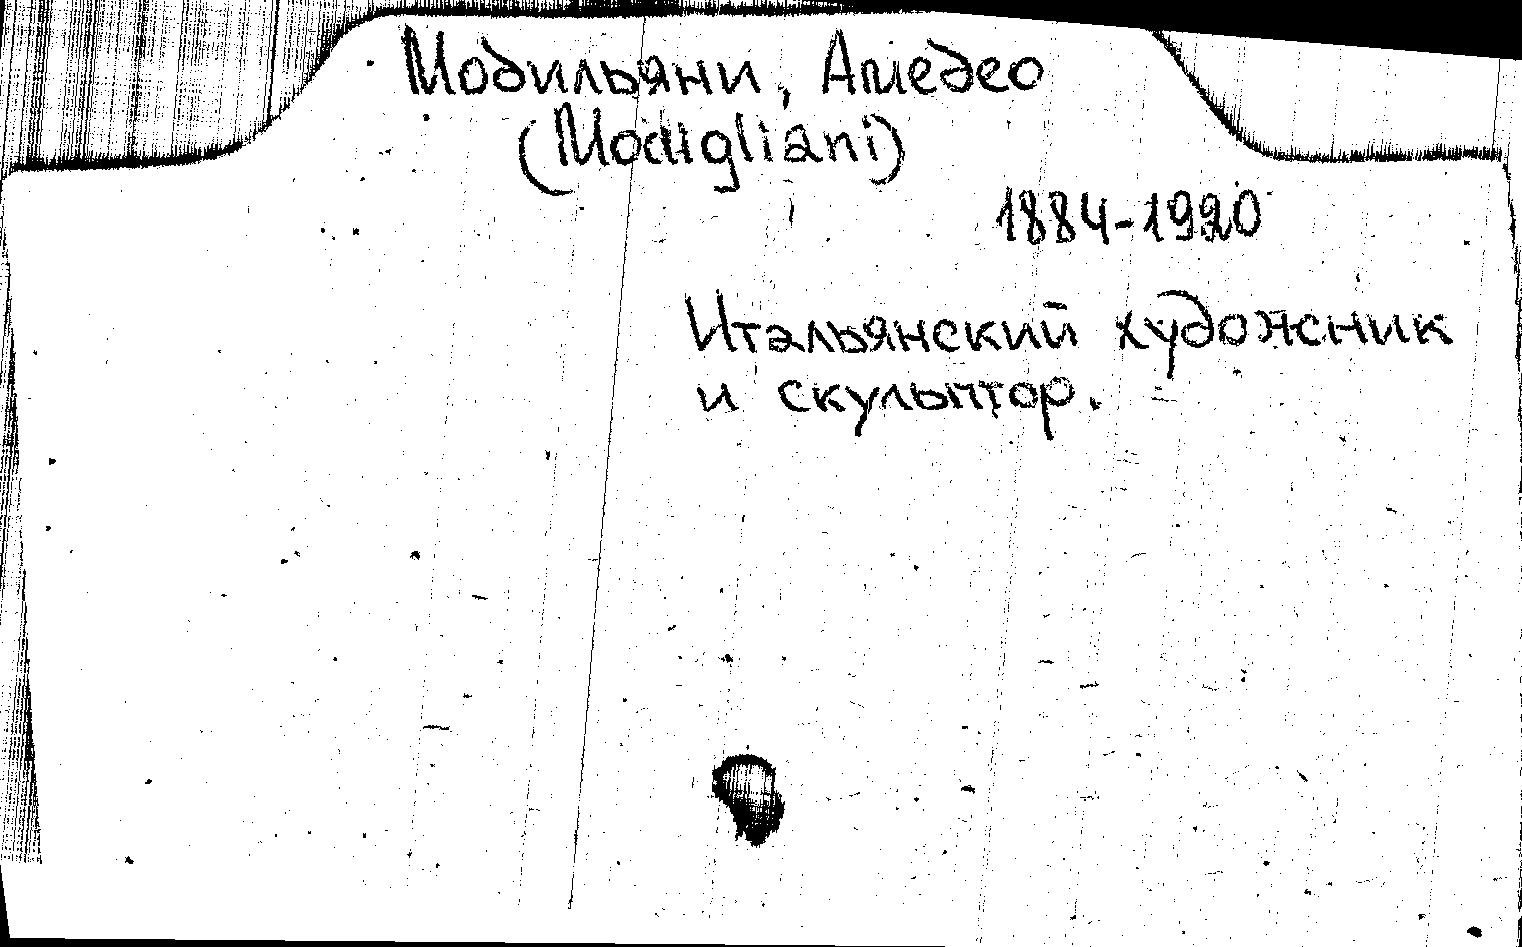 Модильяни, Амедео
(Modigliani)
1884-1920
Итальянский художник
и скульптор.